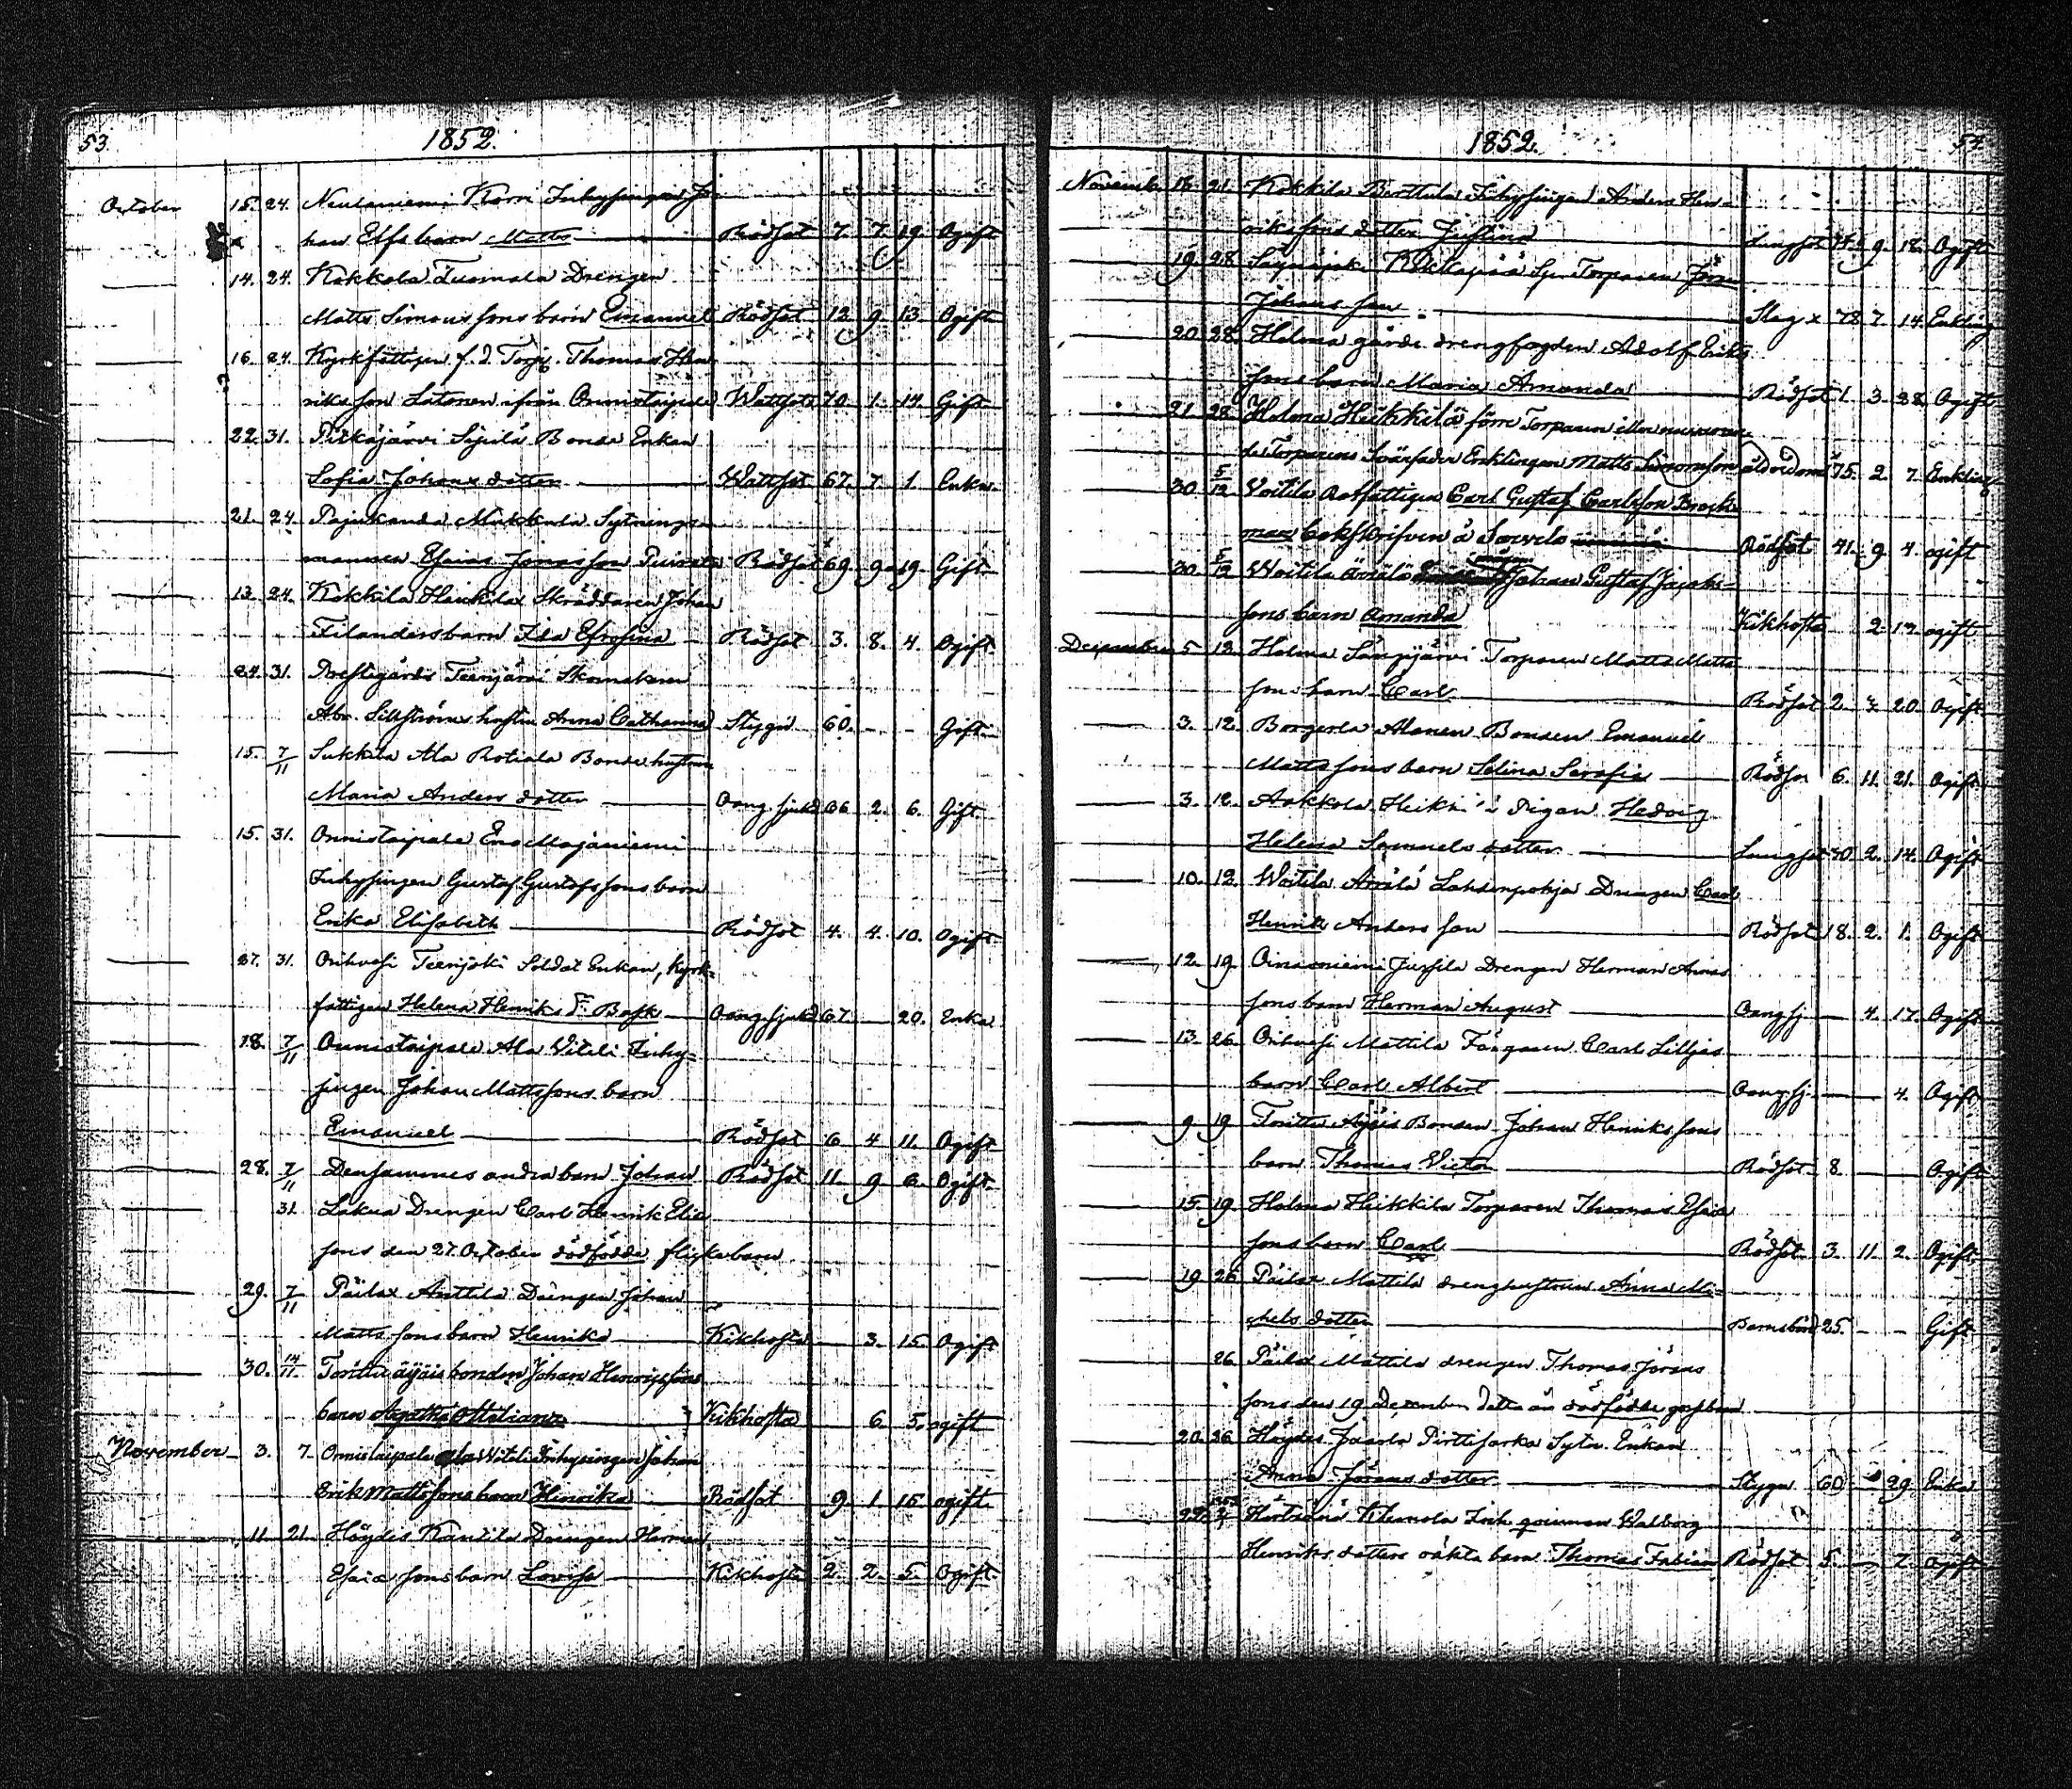 53.
1852.
October 15. 24. Neulaniemi Korri Inhysingen Jo-
han Elfs barn Matts Rödsot 7. 7. 19. Ogift
14. 24. Kokkola Tuomala Drengen
Matts Simonssons barn Emanuel Rödsot 12. 9. 13. Ogift
16. 24. Kyrkfattigen f. d. Torp. Thomas Hen-
riksson Latonen ifrån Onnistaipale Wattsot 70. 1. 14. Gift
22. 31. Pitkäjärvi Sipilä Bonde Enkan
Sofia Johans dotter Wattsot 67. 7. 1. Enka
21. 24. Pajukanda Mukkala Sytnings
mannen Esaias Jonasson Rödsot 69. 9. 19. Gift
13. 24. Kokkila Heikkilä Skräddaren Johan
Filanders barn Ida Efrosina Rödsot 3. 8. 4. Ogift
24. 31. Prestgårds Teerijärvi Skomakaren
Abr. Sillströms hustru Anna Catharina Stygn 60. - - Gift
15. 7/11 Sukkila Ala Rotiala Bonde hustrun
Maria Anders dotter Oang. sjukd 66 2. 6. Gift
15. 31. Onnistaipale Eno Majaniemi
Inhysingen Gustaf Gustafssons barn
Erika Elisabeth Rödsot 4. 4. 10. Ogift
27. 31. Orihvesi Teerijoki Soldat Enkan, Kyrk-
fattigen Helena Henriks d: Bask Oang. sjukd 67. 20. Enka
18. 7/11 Onnistaipale Ala Witeli Inhy-
singen Johan Mattssons barn
Emanuel Rödsot 6 4 11. Ogift
28. 7/11 Densammes andra barn Johan Rödsot 11. 9 6. Ogift
31. Läkiä Drengen Carl Henrik Elia
sons den 27. October dödfödde flickebarn
29. 7/11 Päilax Anttila Drengen Johan
Matts sons barn Henrika Kikhosta 3. 15. Ogift
30. 14/11 Torittu äijäis bonden Johan Henrikssons
barn Agatha Ottiliana Kikhosta 6. 5. ogift
November 3. 7. Onnistaipale ala Witeli Inhysingen Johan
Erik Mattssons barn Henrika Rödsot 9. 1 15. ogift
11. 21. Höydes Kantila Drengen Herman
Esaiæ sons barn Lovisa Kikhosta 2. 2. 5. Ogift
1852. 54.
Novemb. 16. 21. Kokkila Berttula Inhysingen Anders Hen-
rikssons dotter Justina Lungsot 9. 18. Ogift
19. 28. Torparen Jöran
Johansson Slag 78 7. 14. Enkling
20. 28. Holma gårds drengfogden Adolf Eriks
sons barn Maria Amanda Rödsot 1. 3. 28. Ogift
21. 28. Holma Heikkilä förre Torparen
de Torparens Svärfader Enklingen Matts Simonsson ålderdoms 75. 2. 7. Enkling
30. 5/12 Voitila Rotfattigen Carl Gustaf Carlsson
å Sorvila Rödsot 41. 9 4. ogift
30. 5/12 Woitila Johan Gustaf Jacobs-
sons barn Amanda Kikhosta 2. 17. ogift
December 5 12. Holma Särpijärvi Torparen Matts Matts
sons barn Carl Rödsot 2. 4. 20. Ogift
3. 12. Borgerla Alanen Bonden Emanuel
Mattssons barn Selina Serafia Rödsot 6. 11. 21. Ogift
3. 12. Aakkola Heikkilä Pigan Hedvig
Helena Samuels dotter Lungsot 40 2. 14. Ogift
10. 12. Woitila Arrälä Lahdenpohja Drengen Carl
Henrik Andersson Rödsot 18. 2. 1. Ogift
12. 19. Oinasniemi Jussila Drengen Herman Anders
sons barn Herman August Oang sj. 4. 17. Ogift
13. 26. Orihvesi Mattila Färgaren Carl Lilljas
barn Carl Albert Oang. sj. 4. Ogift
9 19 Torittu Äijäis Bonden Johan Henrikssons
barn Thomas Victor Rödsot 8. Ogift
15. 19. Holma Heikkilä Torparen Thomas Esaiæ
sons barn Carl Rödsot 3. 11. 2. Ogift
19 26 Päilax Mattila drenghustrun Anna Mi-
chels dotter Barnsbörd 25. - - Gift
26 Päilax Mattila drengen Thomas Jörans
sons den 19 December detta år dödfödde gossebarn
20. 26 Höydes Jaarla Pirttisarka Sytn. Enkan
Anna Jörans dotter Stygn 60 29. Enka
Henriks dotters oäkta barn Thomas Fabian Rödsot 5. — 7. Ogift